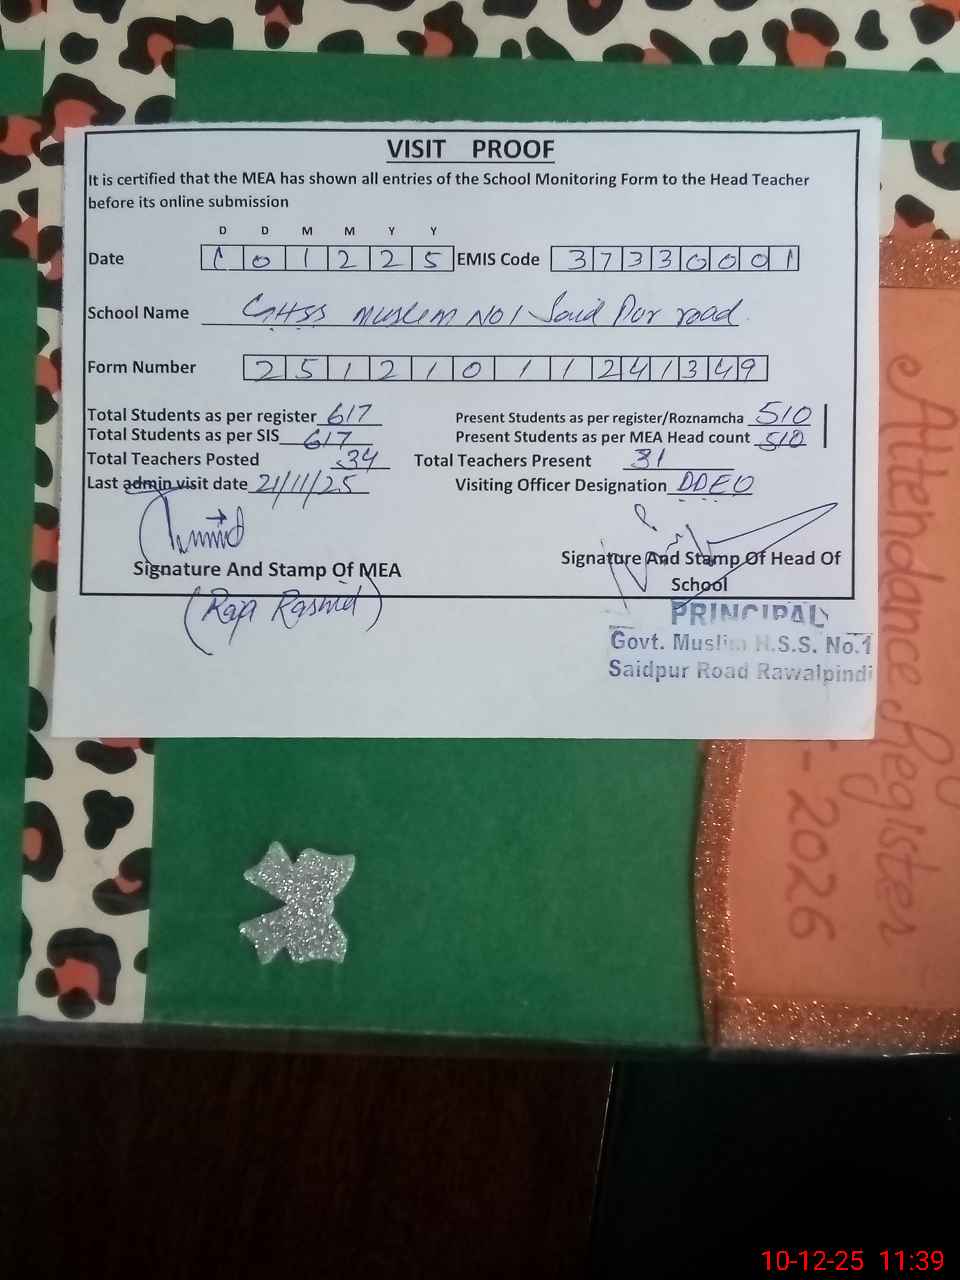 VISIT PROOF
It is certified that the MEA has shown all entries of the School Monitoring Form to the Head Teacher
before its online submission
D D M M Y Y
Date 1 0 1 2 2 5 EMIS Code 3 7 3 3 0 0 0 1
School Name GHSS Muslim NO 1 Said Pur road
Form Number 2 5 1 2 1 0 1 1 2 4 1 3 4 9
Total Students as per register 617 Present Students as per register/Roznamcha 510
Total Students as per SIS 617 Present Students as per MEA Head count 510
Total Teachers Posted 34 Total Teachers Present 31
Last admin visit date 21/11/25 Visiting Officer Designation DDEO
Signature And Stamp Of MEA
(Raja Rashid)
Signature And Stamp Of Head Of
School
PRINCIPAL
Govt. Muslim H.S.S. No.1
Saidpur Road Rawalpindi
Attendance Register
- 2026
10-12-25 11:39